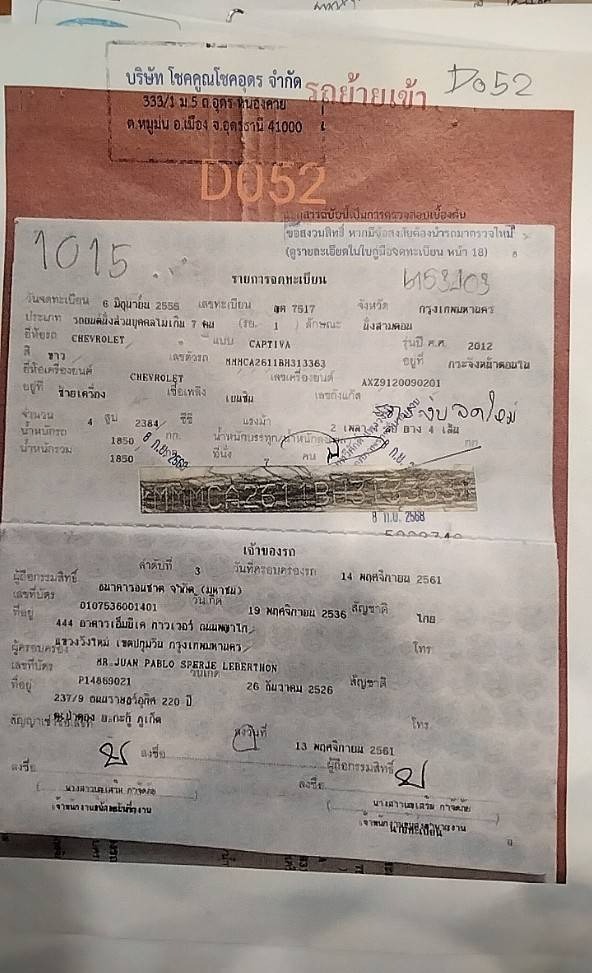 บริษัท โชคคูณโชคอุดร จำกัด
333/1 ม.5 ถ.อุดร-หนองคาย
ต.หมูม่น อ.เมือง จ.อุดรธานี 41000
รถย้ายเข้า
D052
D052
เอกสารฉบับนี้เป็นการตรวจสอบเบื้องต้น
ขอสงวนสิทธิ์ หากมีข้อสงสัยต้องนำรถมาตรวจใหม่
(ดูรายละเอียดในใบคู่มือจดทะเบียน หน้า 18)
1015
รายการจดทะเบียน
วันจดทะเบียน 6 มิถุนายน 2555 เลขทะเบียน 7517 จังหวัด กรุงเทพมหานคร
ประเภท รถยนต์นั่งส่วนบุคคลไม่เกิน 7 คน (รย. 1 ) ลักษณะ นั่งสามตอน
ยี่ห้อรถ CHEVROLET แบบ CAPTIVA รุ่นปี ค.ศ. 2012
สี ขาว เลขตัวรถ MMMCA2611BH313363 อยู่ที่
ยี่ห้อเครื่องยนต์ CHEVROLET เลขเครื่องยนต์ AXZ9120090201
อยู่ที่ ซ้ายเครื่อง เชื้อเพลิง เบนซิน เลขถังแก๊ส
จำนวน 4 สูบ 2384 ซีซี แรงม้า 2 เพลา ล้อ ยาง 4 เส้น
น้ำหนักรถ 1850 กก. น้ำหนักบรรทุก/น้ำหนัก กก.
น้ำหนักรวม 1850 ที่นั่ง 7 คน
8 ก.ย. 2568
MMMCA2611BH313363
8 ก.ย. 2568
เจ้าของรถ
ลำดับที่ 3 วันที่ครอบครองรถ 14 พฤศจิกายน 2561
ผู้ถือกรรมสิทธิ์ ธนาคารธนชาต จำกัด (มหาชน)
เลขที่บัตร 0107536001401 วันเกิด 19 พฤศจิกายน 2536 สัญชาติ ไทย
ที่อยู่ 444 อาคารเอ็มบีเค ทาวเวอร์ ถนนพญาไท
แขวงวังใหม่ เขตปทุมวัน กรุงเทพมหานคร โทร
ผู้ครอบครอง MR.JUAN PABLO SPERJE LEBERTHON
เลขที่บัตร P14869021 วันเกิด 26 ธันวาคม 2526 สัญชาติ
ที่อยู่ 237/9 ถนนราษฎร์อุทิศ 220 ปี
ต.ป่าตอง อ.กะทู้ ภูเก็ต โทร
ลงวันที่ 13 พฤศจิกายน 2561
ลงชื่อ ผู้ถือกรรมสิทธิ์
ลงชื่อ
ลงชื่อ